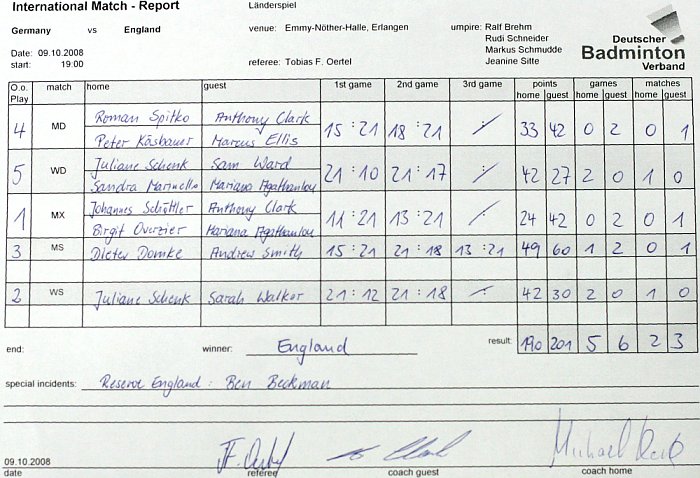 International Match - Report Länderspiel
Germany vs England venue: Emmy-Nöther-Halle, Erlangen umpire: Ralf Brehm
Rudi Schneider
Date: 09.10.2008 Markus Schmudde
start: 19:00 referee: Tobias F. Oertel Jeanine Sitte
Deutscher
Badminton
Verband
O.o. match home guest 1st game 2nd game 3rd game points games matches
Play home guest home guest home guest
4 MD Roman Spitko Anthony Clark 15 : 21 18 : 21 : 33 42 0 2 0 1
Peter Käsbauer Marcus Ellis
5 WD Juliane Schenk Sam Ward 21 : 10 21 : 17 : 42 27 2 0 1 0
Sandra Marinello Mariana Agathangelou
1 MX Johannes Schöttler Anthony Clark 11 : 21 13 : 21 : 24 42 0 2 0 1
Birgit Overzier Mariana Agathangelou
3 MS Dieter Domke Andrew Smith 15 : 21 21 : 18 13 : 21 49 60 1 2 0 1
2 WS Juliane Schenk Sarah Walker 21 : 12 21 : 18 : 42 30 2 0 1 0
end: winner: England result: 190 201 5 6 2 3
special incidents: Reserve England: Ben Beckman
09.10.2008
date referee coach guest coach home